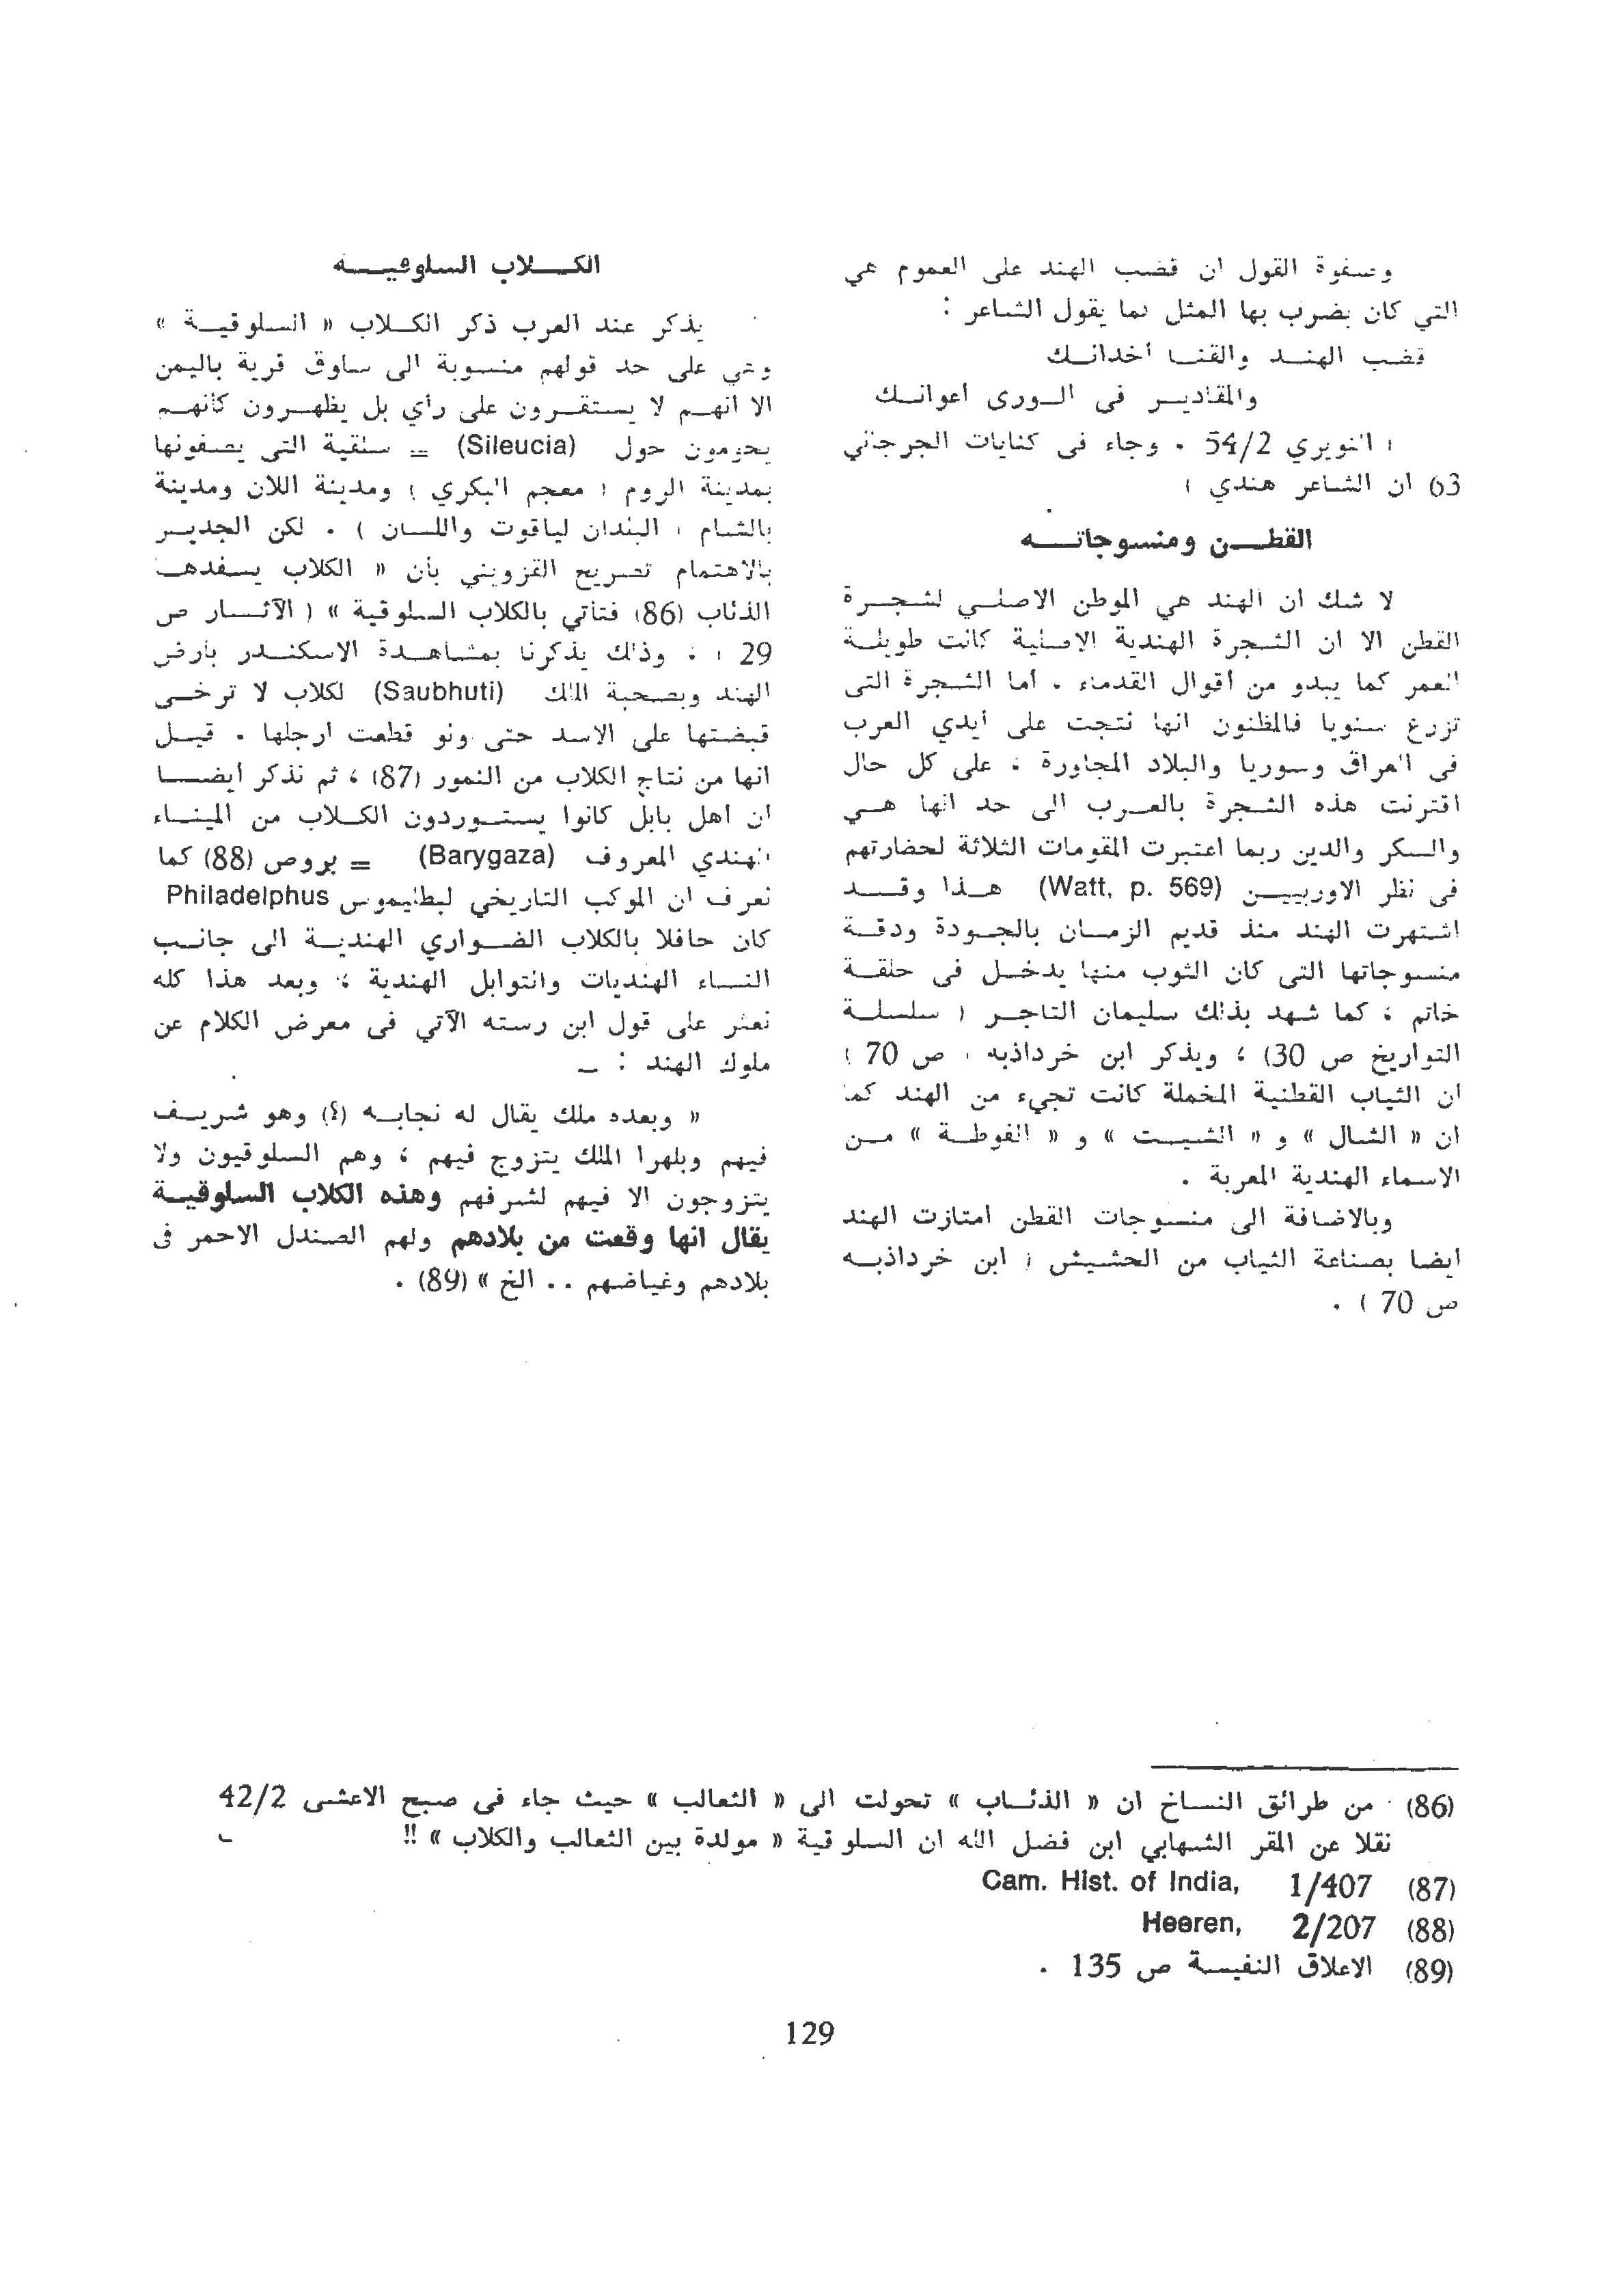 وصفوة القول ان قضب الهند على العموم هي
التي كان يضرب بها المثل كما يقول الشاعر :
قضب الهند والقنا أخدانك
والمقادير فى الورى أعوانك
( النويري 54/2 . وجاء فى كنايات الجرجاني
63 ان الشاعر هندي )
القطن ومنسوجاته
لا شك ان الهند هي الموطن الاصلي لشجرة
القطن الا ان الشجرة الهندية الاصلية كانت طويلة
العمر كما يبدو من أقوال القدماء . أما الشجرة التى
تزرع سنويا فالمظنون انها نتجت على أيدي العرب
فى العراق وسوريا والبلاد المجاورة ، على كل حال
اقترنت هذه الشجرة بالعرب الى حد انها هي
والسكر والدين ربما اعتبرت المقومات الثلاثة لحضارتهم
فى نظر الاوربيين (Watt, p. 569) هذا وقد
اشتهرت الهند منذ قديم الزمان بالجودة ودقة
منسوجاتها التى كان الثوب منها يدخل فى حلقة
خاتم ، كما شهد بذلك سليمان التاجر ( سلسلة
التواريخ ص 30) ؛ ويذكر ابن خرداذبه ( ص 70 )
ان الثياب القطنية المخملة كانت تجيء من الهند كما
ان « الشال » و « الشيت » و « الفوطة » من
الاسماء الهندية المعربة .
وبالاضافة الى منسوجات القطن امتازت الهند
ايضا بصناعة الثياب من الحشيش ( ابن خرداذبه
ص 70 ) .
الكلاب السلوقيه
يذكر عند العرب ذكر الكلاب « السلوقية »
وهي على حد قولهم منسوبة الى سلوق قرية باليمن
الا انهم لا يستقرون على رأي بل يظهرون كأنهم
يحومون حول (Sileucia) = سلقية التى يصفونها
بمدينة الروم ( معجم البكري ) ومدينة اللان ومدينة
بالشام ( البلدان لياقوت واللسان ) . لكن الجدير
بالاهتمام تصريح القزويني بأن « الكلاب يسفدها
الذئاب (86) فتأتي بالكلاب السلوقية » ( الآثار ص
29 ) . وذلك يذكرنا بمشاهدة الاسكندر بأرض
الهند وبصحبة الملك (Saubhuti) لكلاب لا ترخى
قبضتها على الاسد حتى ولو قطعت ارجلها . قيل
انها من نتاج الكلاب من النمور (87) ، ثم نذكر ايضا
ان اهل بابل كانوا يستوردون الكلاب من الميناء
الهندي المعروف (Barygaza) = بروص (88) كما
نعرف ان الموكب التاريخي لبطليموس Philadelphus
كان حافلا بالكلاب الضواري الهندية الى جانب
النساء الهنديات والتوابل الهندية ؛ وبعد هذا كله
نعثر على قول ابن رسته الآتي فى معرض الكلام عن
ملوك الهند : ـ
« وبعده ملك يقال له نجابه (؟) وهو شريف
فيهم وبلهرا الملك يتزوج فيهم ؛ وهم السلوقيون ولا
يتزوجون الا فيهم لشرفهم وهذه الكلاب السلوقية
يقال انها وقعت من بلادهم ولهم الصندل الاحمر فى
بلادهم وغياضهم .. الخ » (89) .
(86) من طرائق النساخ ان « الذئاب » تحولت الى « الثعالب » حيث جاء فى صبح الاعشى 42/2
نقلا عن المقر الشهابي ابن فضل الله ان السلوقية « مولدة بين الثعالب والكلاب » !!
(87) Cam. Hist. of India, 1/407
(88) Heeren, 2/207
(89) الاعلاق النفيسة ص 135 .
129